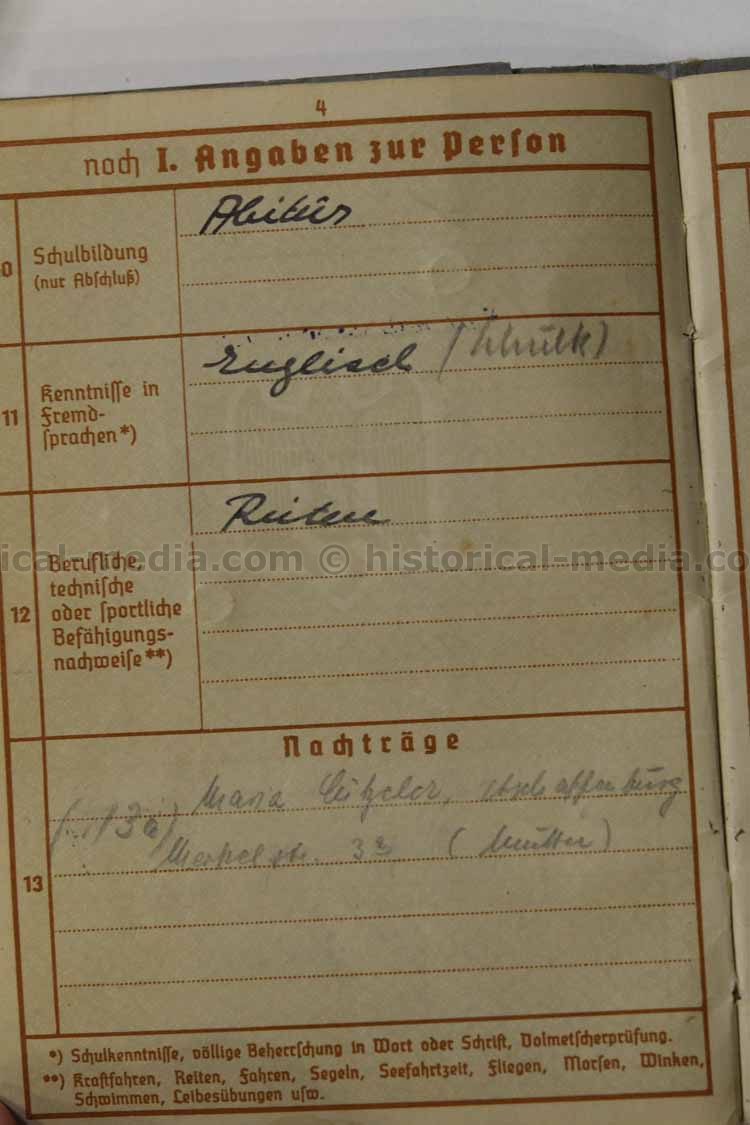 4
noch I. Angaben zur Person
Abitur
Schulbildung
(nur Abschluß)
Englisch
11
Kenntnisse in
Fremd-
sprachen*)
Reiten
ical-media.com © historical-media.co
12
Berufliche,
technische
oder sportliche
Befähigungs-
nachweise**)
Nachträge
Maria Lützeler, Aschaffenburg
Merkelstr. 3a (Mutter)
13
*) Schulkenntnisse, völlige Beherrschung in Wort oder Schrift, Dolmetscherprüfung.
**) Kraftfahren, Reiten, Fahren, Segeln, Seefahrtzeit, Fliegen, Morsen, Winken,
Schwimmen, Leibesübungen usw.